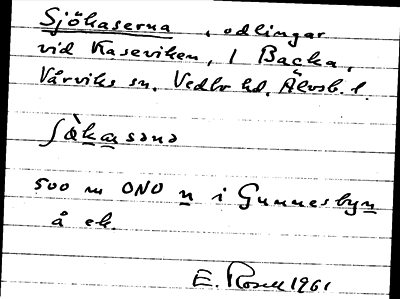 Sjökaserna, odlingar
vid Kaseviken, 1 Backa,
Vårviks sn. Vedbo hd. Älvsb. l.
ʃø̀kasənə
500 m ONO n i Gunnesbyn
å ek.
E. Rosell 1961